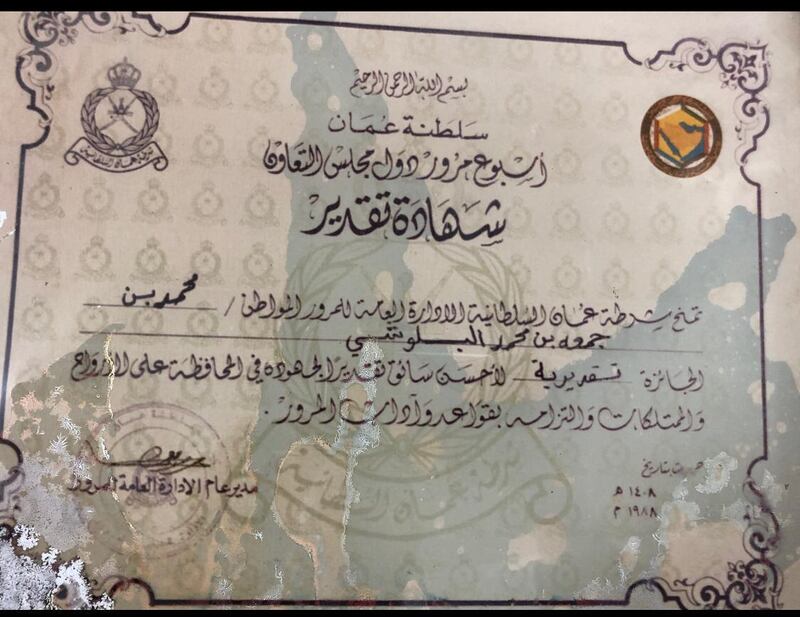 بسم الله الرحمن الرحيم
سلطنة عمان
أسبوع مرور دول مجلس التعاون
شهادة تقدير
تمنح شرطة عمان السلطانية الادارة العامة للمرور المواطن / محمد بن
جمعه بن محمد البلوشي
الجائزة تقديرية لأحسن سائق تقديرًا لجهوده في المحافظة على الأرواح
والممتلكات والتزامه بقواعد وآداب المرور .
بتاريخ
١٤٠٨ هـ
١٩٨٨ م
مدير عام الادارة العامة للمرور
شرطة عمان السلطانية